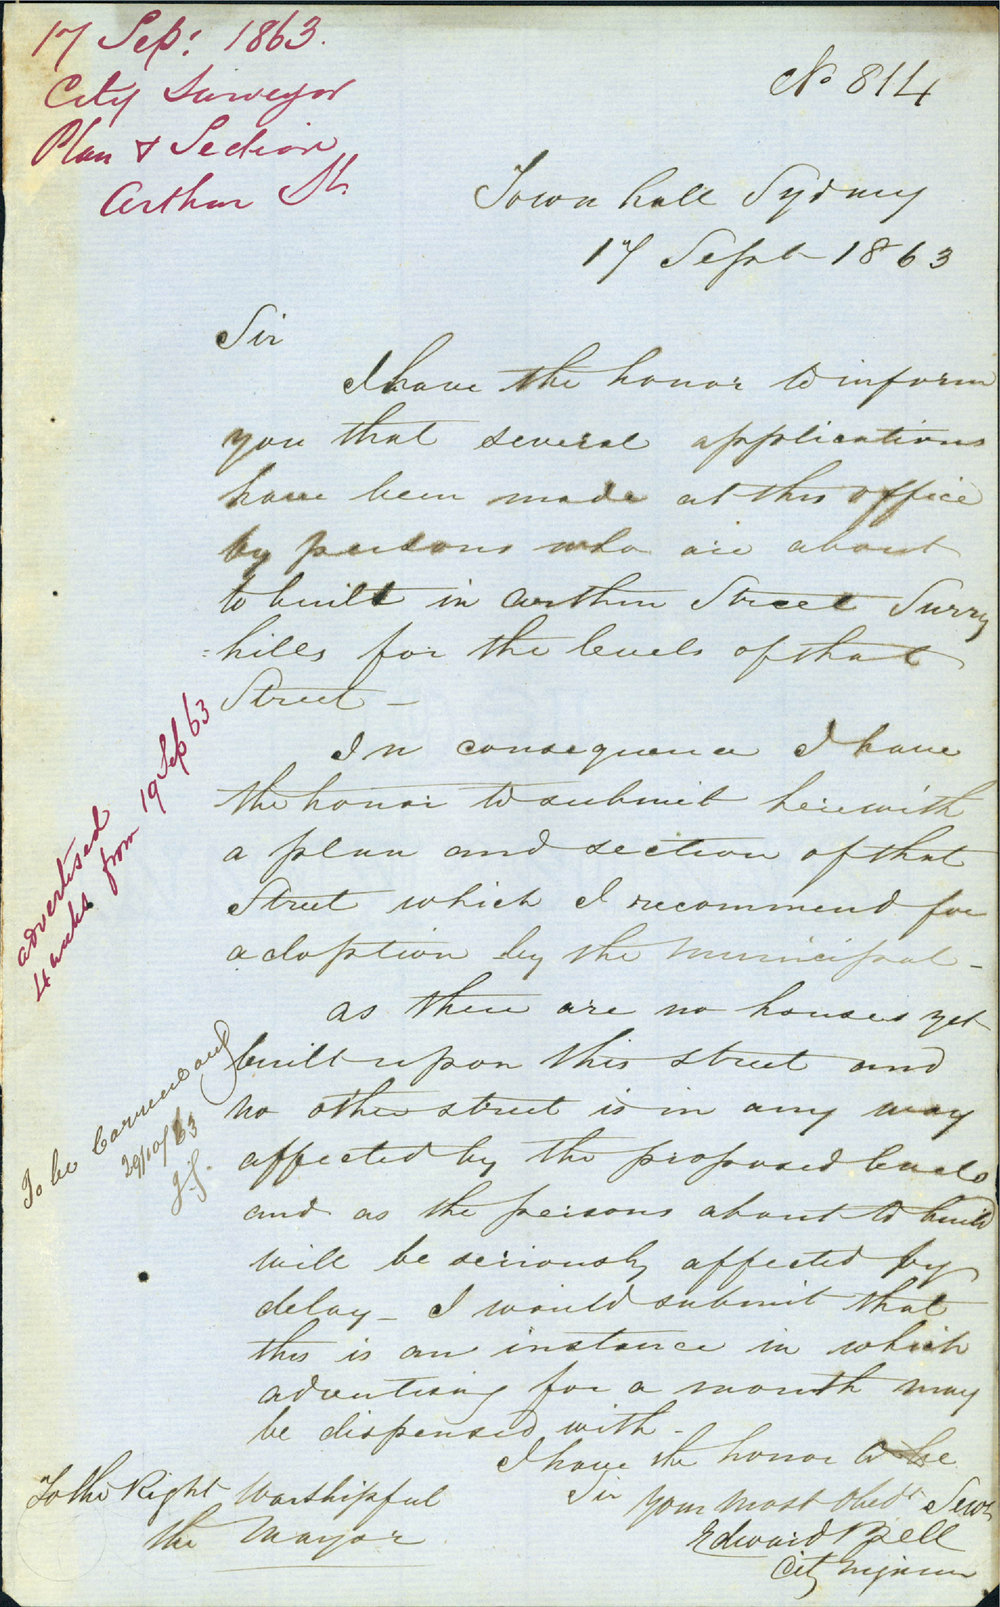 17 Sep: 1863.
City Surveyor
Plan & Section
Arthur St.
No 814
Town hall Sydney
17 Sept 1863
Sir
I have the honor to inform
you that several applications
have been made at this office
by persons who are about
to built in Arthur Street Surry
=hills for the levels of that
Street -
In consequence I have
the honor to submit herewith
a plan and section of that
Street which I recommend for
adoption by the Municipal -
as there are no houses yet
built upon this street and
no other street is in any way
affected by the proposed levels
and as the persons about to build
will be seriously affected by
delay - I would submit that
this is an instance in which
advertising for a month may
be dispensed with -
I have the honor to be
Sir
your most Obedt Servt
Edward Bell
City Engineer
To the Right Worshipful
the Mayor
advertised
4 weeks from 19 Sep 63
To be
29/10/63